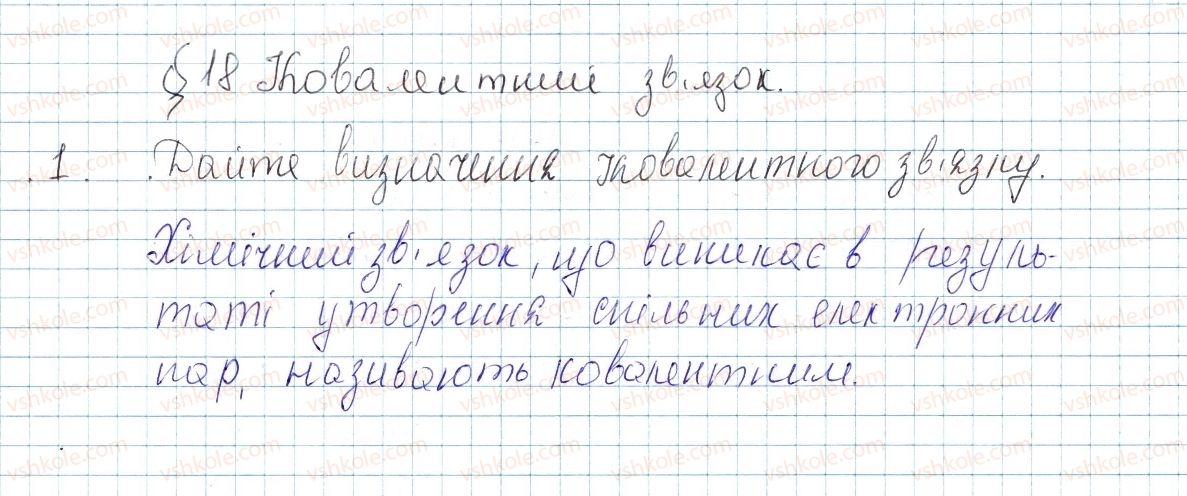 § 18 Ковалентний зв'язок.
1. Дайте визначення ковалентного зв'язку.
Хімічний зв'язок, що виникає в резуль-
таті утворення спільних електронних
пар, називають ковалентним.